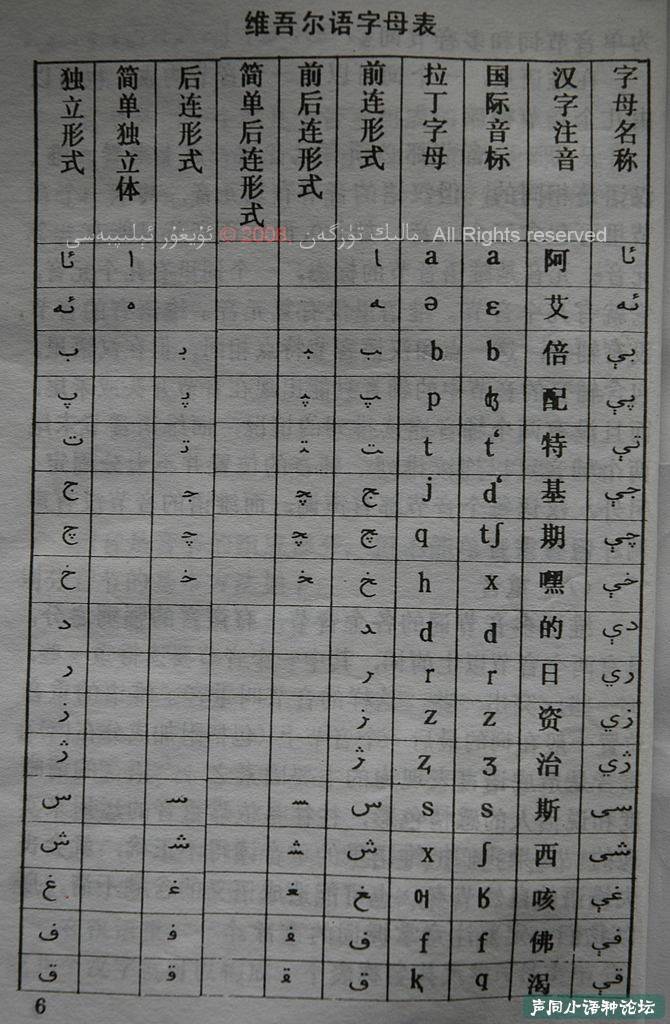 维吾尔语字母表
独立形式 简单独立体 后连形式 简单后连形式 前后连形式 前连形式 拉丁字母 国际音标 汉字注音 字母名称
مالىك تۈزگەن. All Rights reserved © 2008 ئۇيغۇر ئېلىپبەسى
ئا ا ـا a a 阿 ئا
ئە ە ـە ə ɛ 艾 ئە
ب بـ ـبـ ـب b b 倍 بې
پ پـ ـپـ ـپ p 配 پې
ت تـ ـتـ ـت t t‘ 特 تې
ج جـ ـجـ ـج j d‘ 基 جې
چ چـ ـچـ ـچ q tʃ 期 چې
خ خـ ـخـ ـخ h x 嘿 خې
د ـد d d 的 دې
ر ـر r r 日 رې
ز ـز z z 资 زې
ژ ـژ ⱬ ʒ 治 ژې
س سـ ـسـ ـس s s 斯 سى
ش شـ ـشـ ـش x ʃ 西 شى
غ غـ ـغـ ـغ ƣ ʁ 咳 غې
ف فـ ـفـ ـف f f 佛 فې
ق قـ ـقـ ـق ⱪ q 渴 قې
6
声同小语种论坛